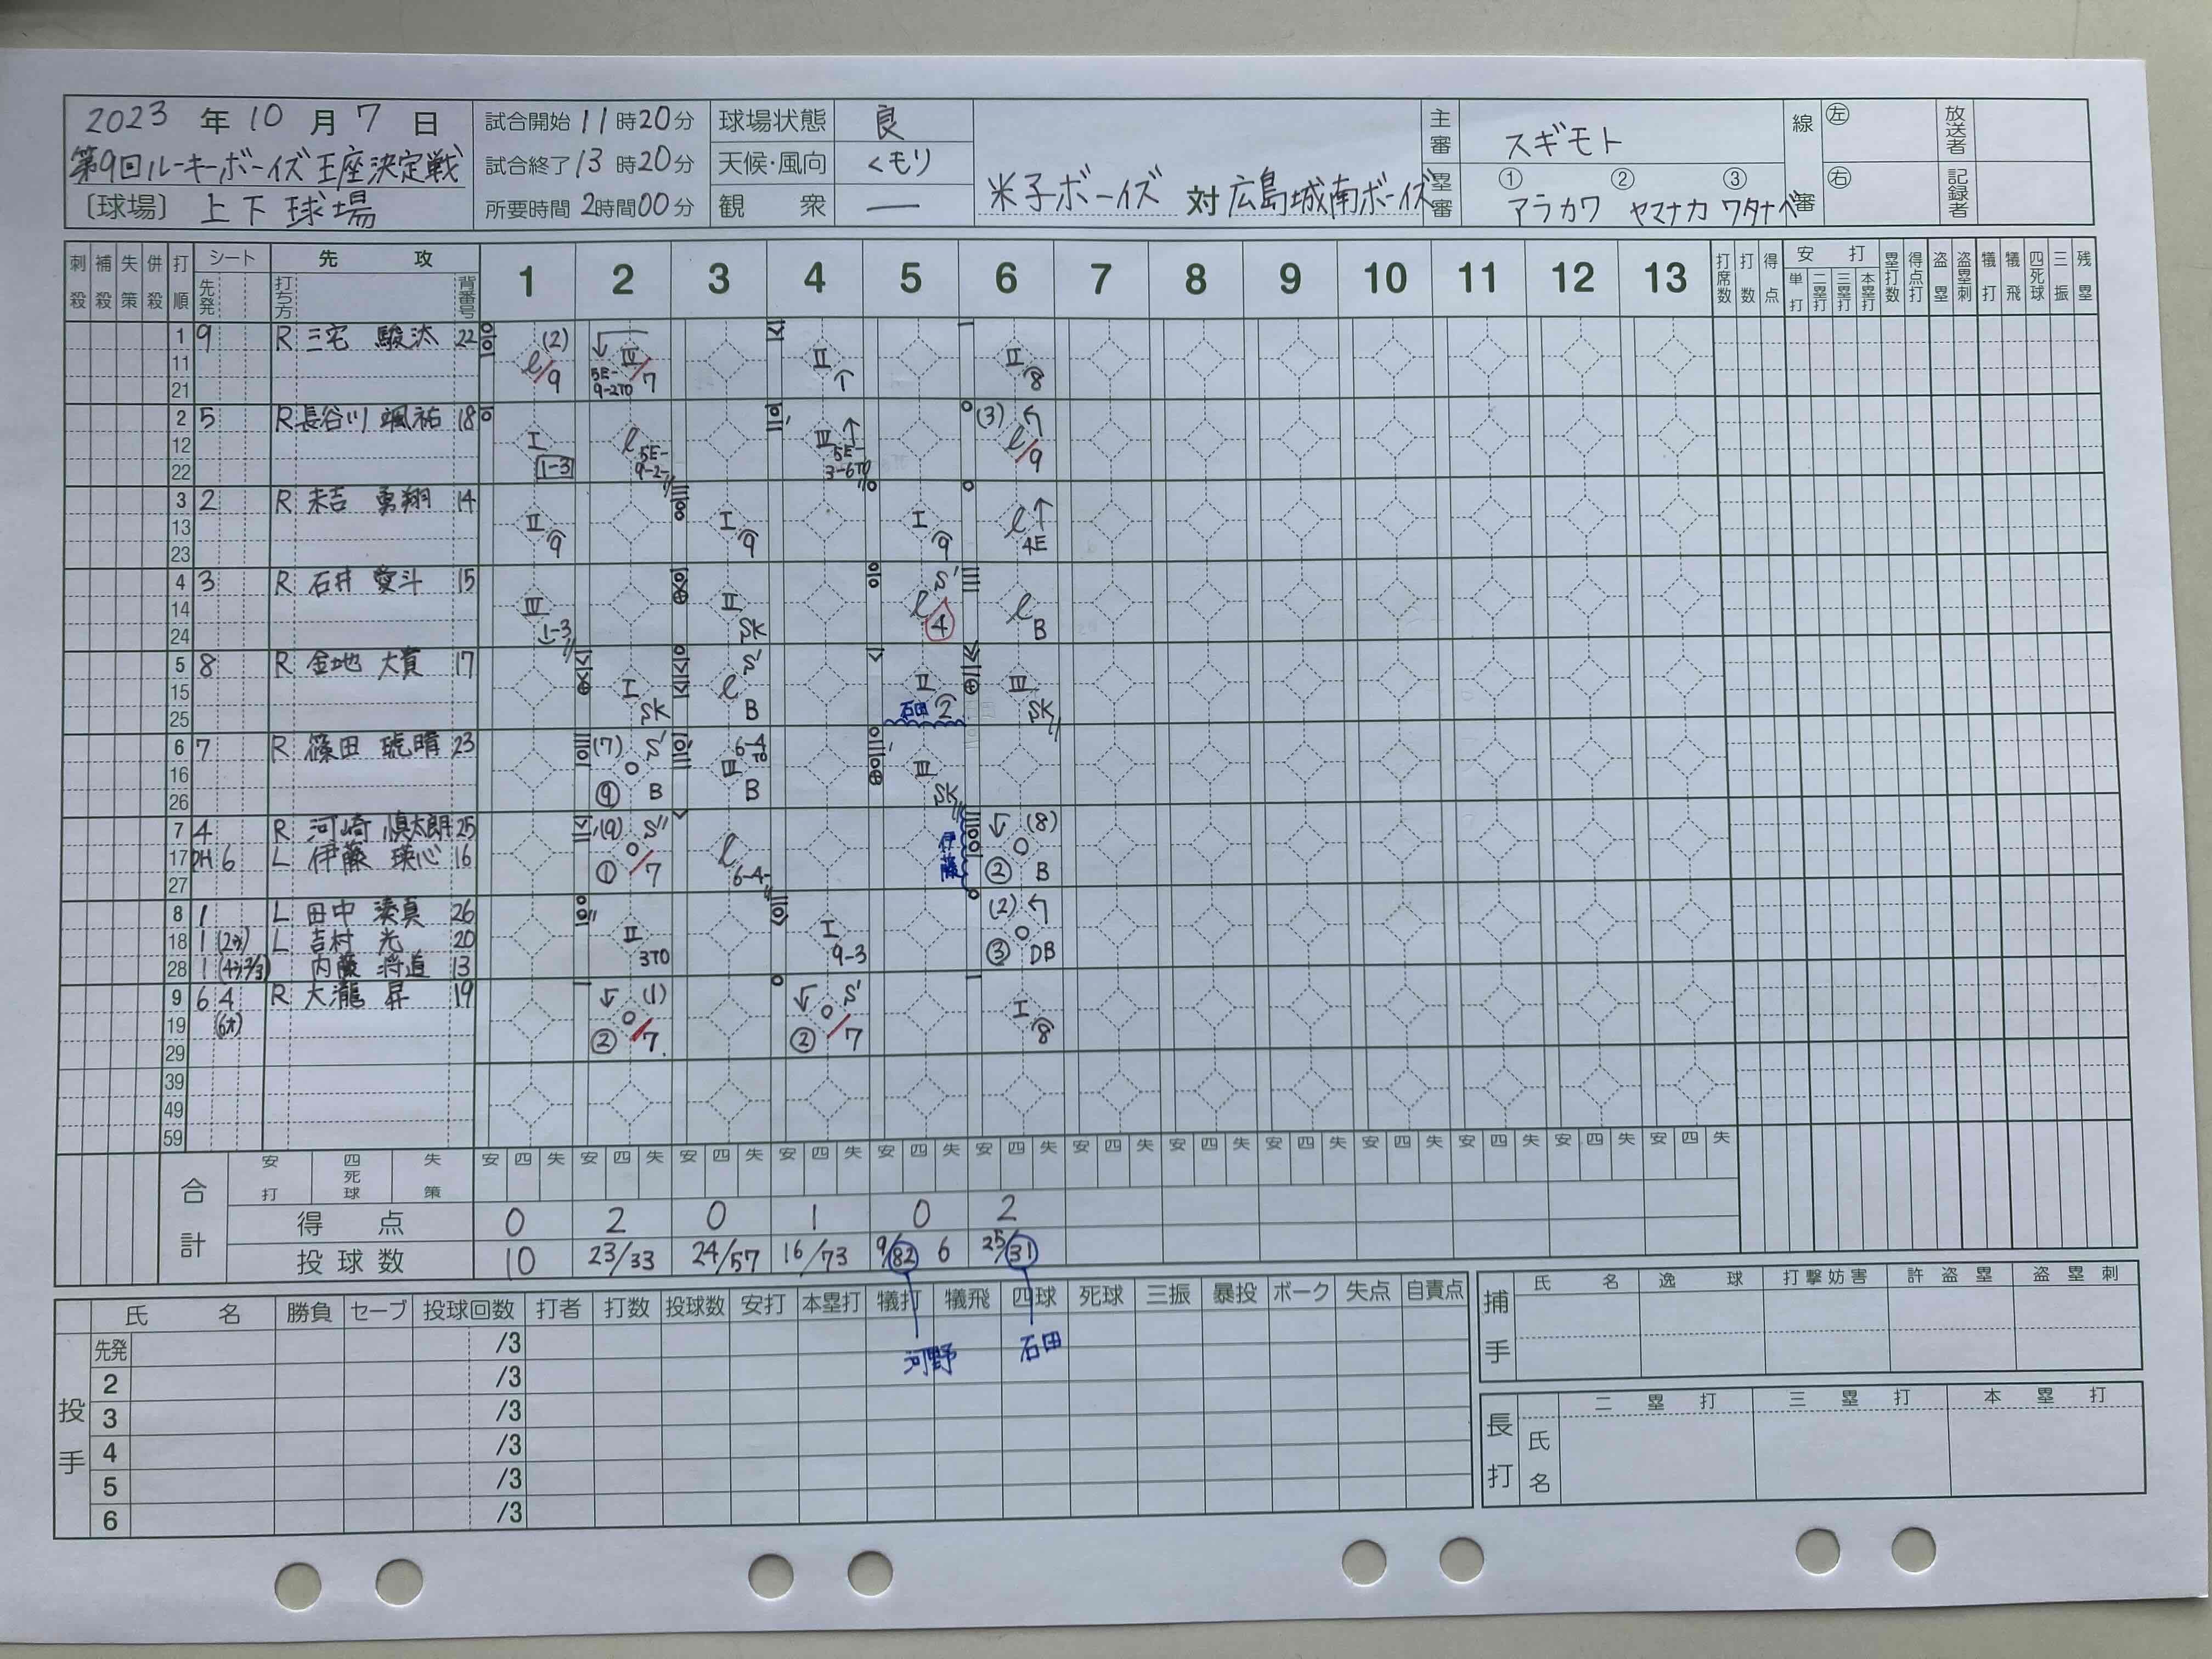 2023 年 10 月 7 日
第9回ルーキーボーイズ王座決定戦
〔球場〕 上下球場
試合開始 11時20分
試合終了 13時20分
所要時間 2時間00分
球場状態 良
天候・風向 くもり
観衆 ―
米子ボーイズ 対 広島城南ボーイズ
主審 スギモト
塁審 ① アラカワ ② ヤマナカ ③ ワタナベ
線審 左 右
放送者
記録者
刺殺 補殺 失策 併殺 打順 シート 先発 先攻 打ち方 背番号 1 2 3 4 5 6 7 8 9 10 11 12 13 打席数 打数 得点 安打 単打 二塁打 三塁打 本塁打 塁打数 得点打 盗塁 盗塁刺 犠打 犠飛 四死球 三振 残塁
1 9 R 三宅 駿汰 22 (2) l/9 5E-9-2TO Ⅲ/7 Ⅱ Ⅱ 8
11
21
2 5 R 長谷川 颯祐 18 Ⅰ 1-3 l 5E-9-2- 5E-3-6TO (3) l/9
12
22
3 2 R 末吉 勇翔 14 Ⅱ 9 Ⅰ 9 Ⅰ 9 l 4E
13
23
4 3 R 石井 愛斗 15 Ⅲ 1-3 Ⅱ SK S' l 4 l B
14
24
5 8 R 金地 大貴 17 Ⅰ SK S' l B Ⅱ 石田 2 Ⅲ SK
15
25
6 7 R 篠田 琥晴 23 (7) S' ⑨ B 6-4TO Ⅲ B Ⅲ SK
16
26
7 4 R 河崎 慎太朗 25 (9) S'' ① /7 l 6-4- 伊藤 (8) ② B
17 PH 6 L 伊藤 瑛心 16
27
8 1 L 田中 湊真 26 Ⅱ 3TO Ⅰ 9-3 (2) ③ DB
18 1 L 吉村 光 20
28 1 内藤 将道 13
9 6 4 R 大瀧 昇 19 (1) ② /7 S' ② /7 Ⅰ 8
19
29
39
49
59
合計 安打 四死球 失策
安 四 失 安 四 失 安 四 失 安 四 失 安 四 失 安 四 失 安 四 失 安 四 失 安 四 失 安 四 失 安 四 失 安 四 失 安 四 失
得点 0 2 0 1 0 2
投球数 10 23/33 24/57 16/73 9/82 6 25/31
河野 石田
投手 氏名 勝負 セーブ 投球回数 打者 打数 投球数 安打 本塁打 犠打 犠飛 四球 死球 三振 暴投 ボーク 失点 自責点
先発 /3
2 /3
3 /3
4 /3
5 /3
6 /3
捕手 氏名 逸球 打撃妨害 許盗塁 盗塁刺
長打 氏名 二塁打 三塁打 本塁打